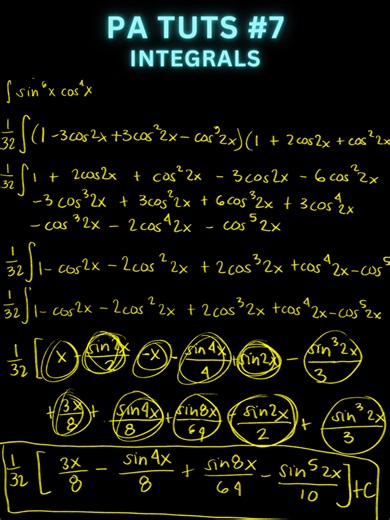 PA TUTS #7
INTEGRALS
∫ sin⁶x cos⁴x
1/32 ∫(1 - 3cos2x + 3cos²2x - cos³2x)(1 + 2cos2x + cos²2x
1/32 ∫ 1 + 2cos2x + cos²2x - 3cos2x - 6cos²2x
-3cos³2x + 3cos²2x + 6cos³2x + 3cos⁴2x
- cos³2x - 2cos⁴2x - cos⁵2x
1/32 ∫ 1 - cos2x - 2cos²2x + 2cos³2x + cos⁴2x - cos⁵
1/32 ∫ 1 - cos2x - 2cos²2x + 2cos³2x + cos⁴2x - cos⁵2x
1/32 [ x - sin2x/2 - x - sin4x/4 + sin2x - sin³2x/3
+ 3x/8 + sin4x/8 + sin8x/64 - sin2x/2 + sin³2x/3
1/32 [ 3x/8 - sin4x/8 + sin8x/64 - sin⁵2x/10 ] + C